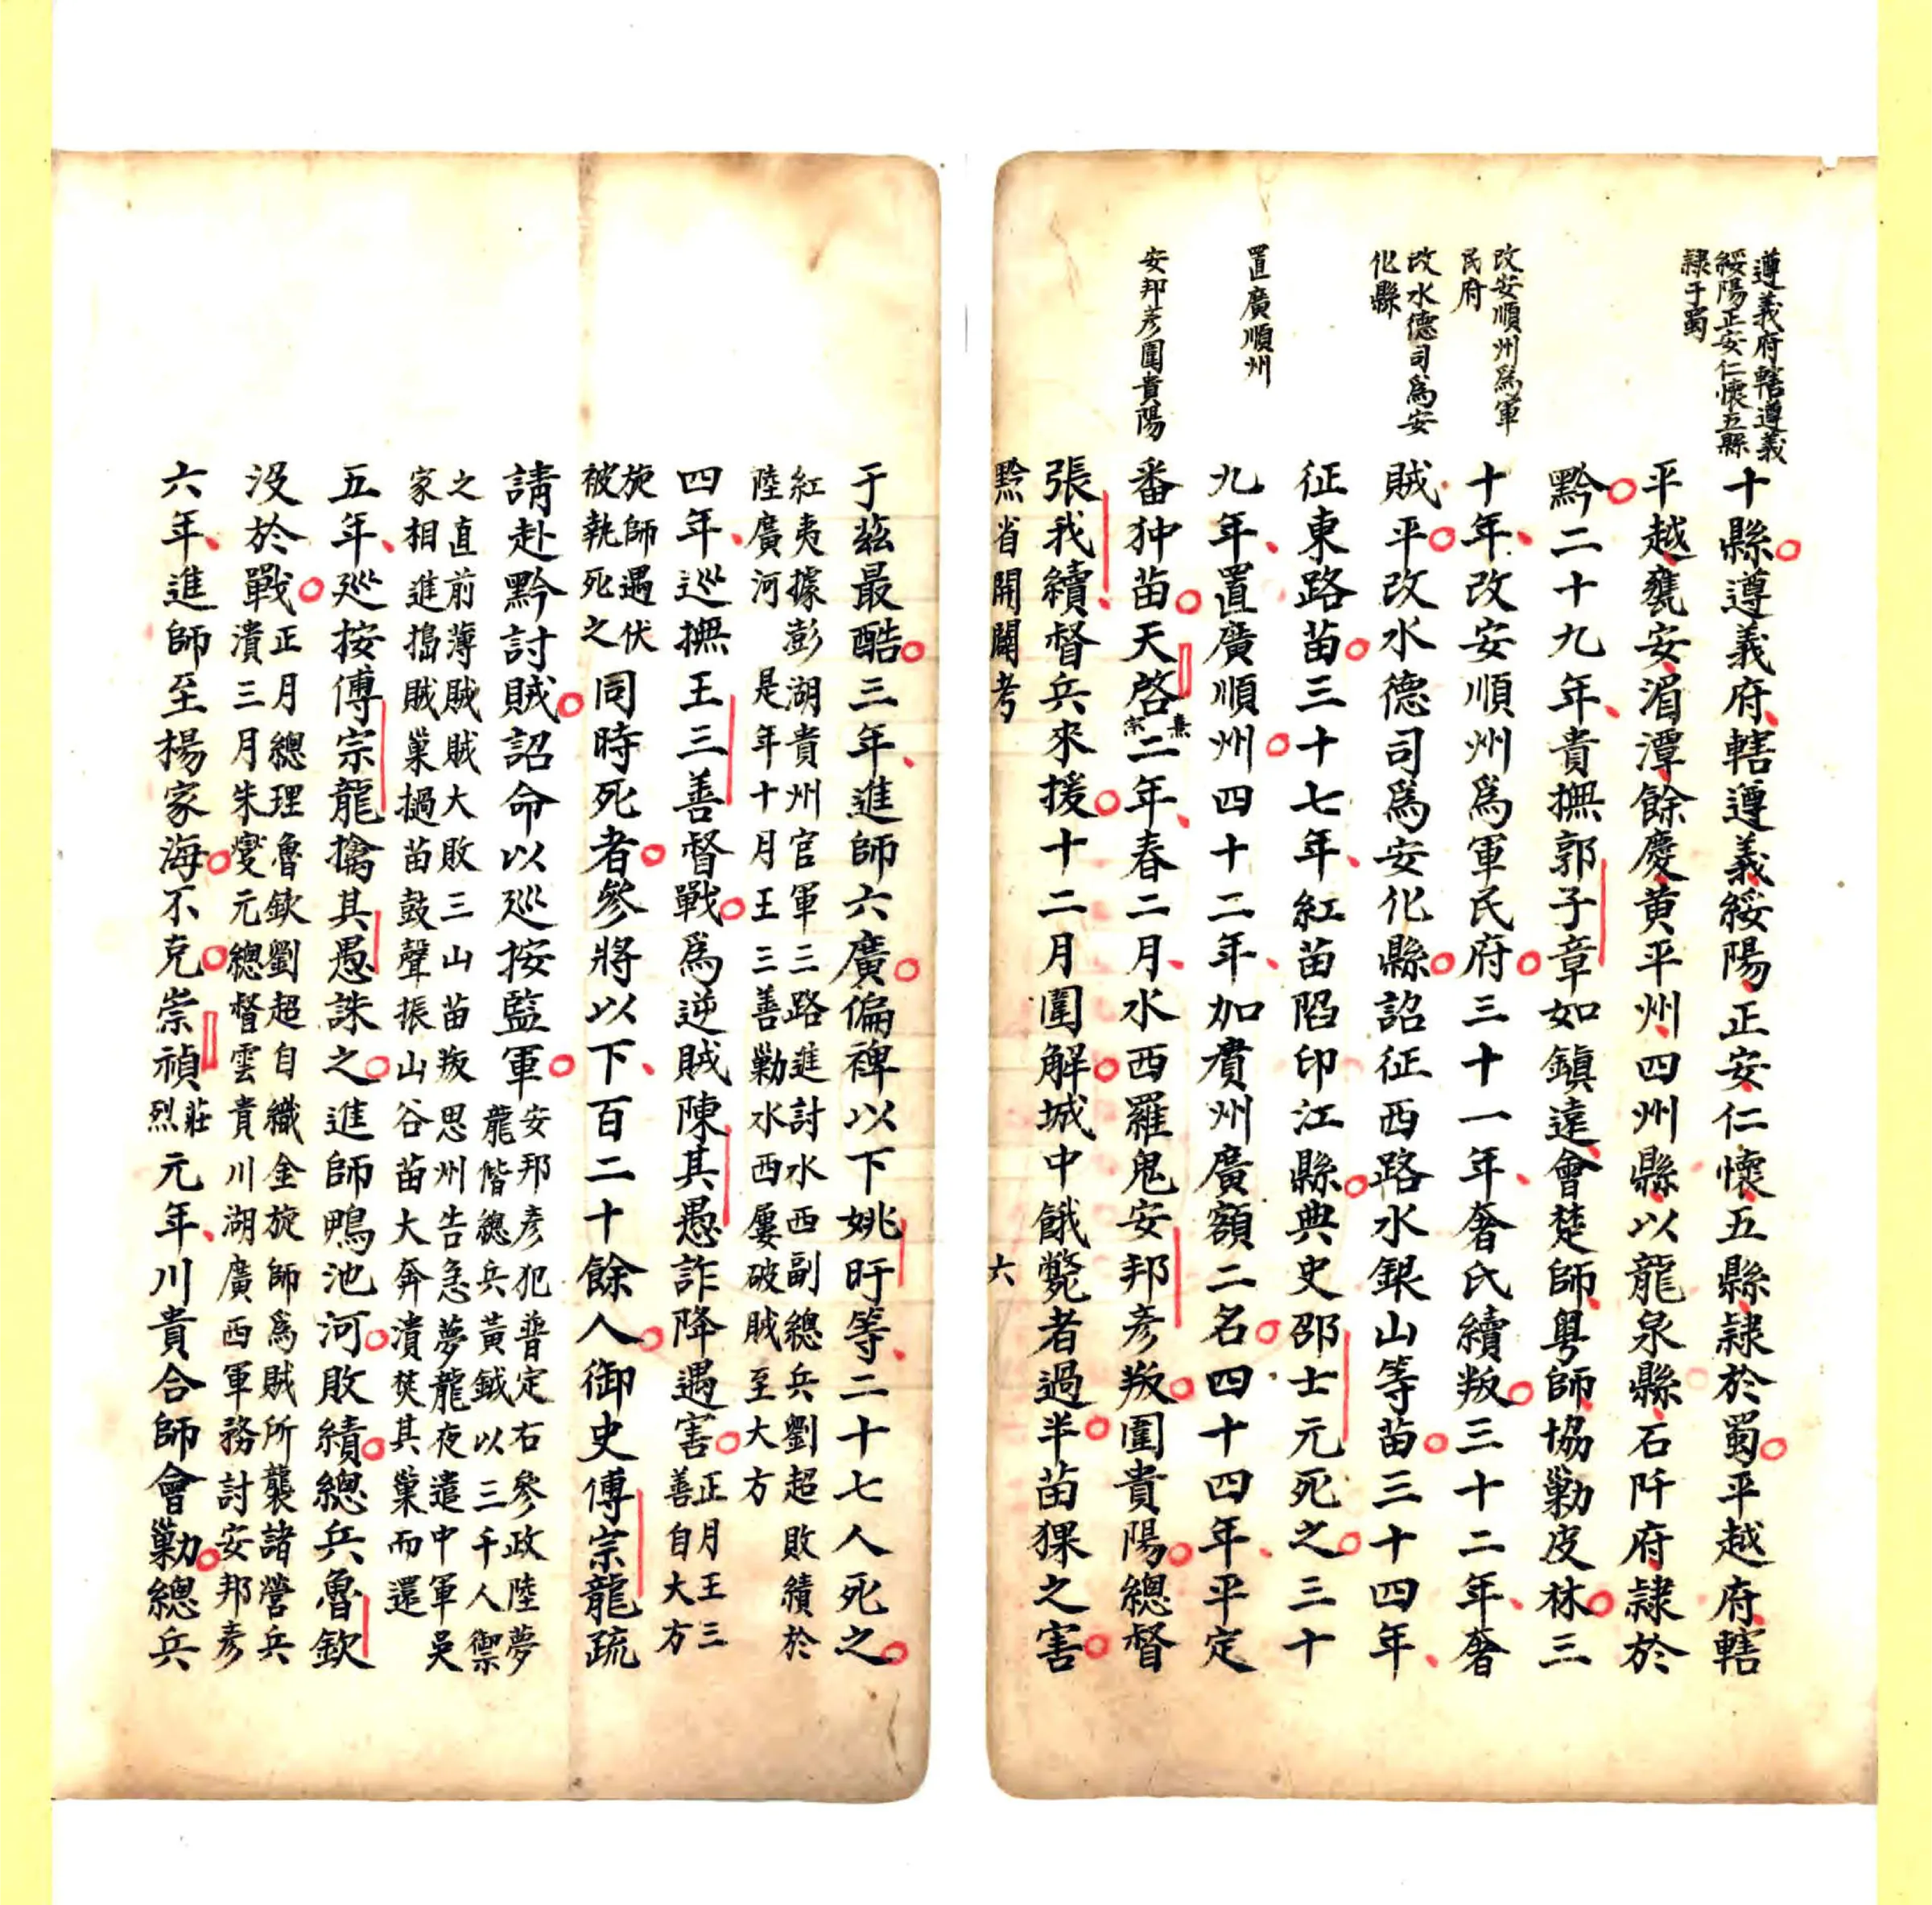 遵義府轄遵義
綏陽正安仁懷五縣
隸于蜀
改安順州爲軍
民府
改水德司爲安
化縣
置廣順州
安邦彥圍貴陽
十縣遵義府轄遵義綏陽正安仁懷五縣隸於蜀平越府轄
平越甕安湄潭餘慶黄平州四州縣以龍泉縣石阡府隸於
黔二十九年貴撫郭子章如鎮遠會楚師粤師協勦皮林三
十年改安順州爲軍民府三十一年奢氏續叛三十二年奢
賊平改水德司爲安化縣詔征西路水銀山等苗三十四年
征東路苗三十七年紅苗陷印江縣典史邵士元死之三十
九年置廣順州四十二年加賚州廣額二名四十四年平定
番狆苗天啓熹宗二年春二月水西羅鬼安邦彥叛圍貴陽總督
張我續督兵來援十二月圍解城中餓斃者過半苗猓之害
黔省開闢考 六
于茲最酷三年進師六廣偏裨以下姚旴等二十七人死之
紅夷據澎湖貴州官軍三路進討水西副總兵劉超敗績於
陸廣河 是年十月王三善勦水西屢破賊至大方
四年巡撫王三善督戰爲逆賊陳其愚詐降遇害正月王三
善自大方
旋師遇伏
被執死之同時死者參將以下百二十餘人御史傅宗龍疏
請赴黔討賊詔命以巡按監軍安邦彥犯普定右參政陸夢
龍偕總兵黃鉞以三千人禦
之直前薄賊賊大敗三山苗叛思州告急夢龍夜遣中軍吳
家相進搗賊巢撾苗鼓聲振山谷苗大奔潰焚其巢而還
五年巡按傅宗龍擒其愚誅之進師鴨池河敗績總兵魯欽
没於戰正月總理魯欽劉超自織金旋師爲賊所襲諸營兵
潰三月朱燮元總督雲貴川湖廣西軍務討安邦彥
六年進師至楊家海不克崇禎莊烈元年川貴合師會勦總兵